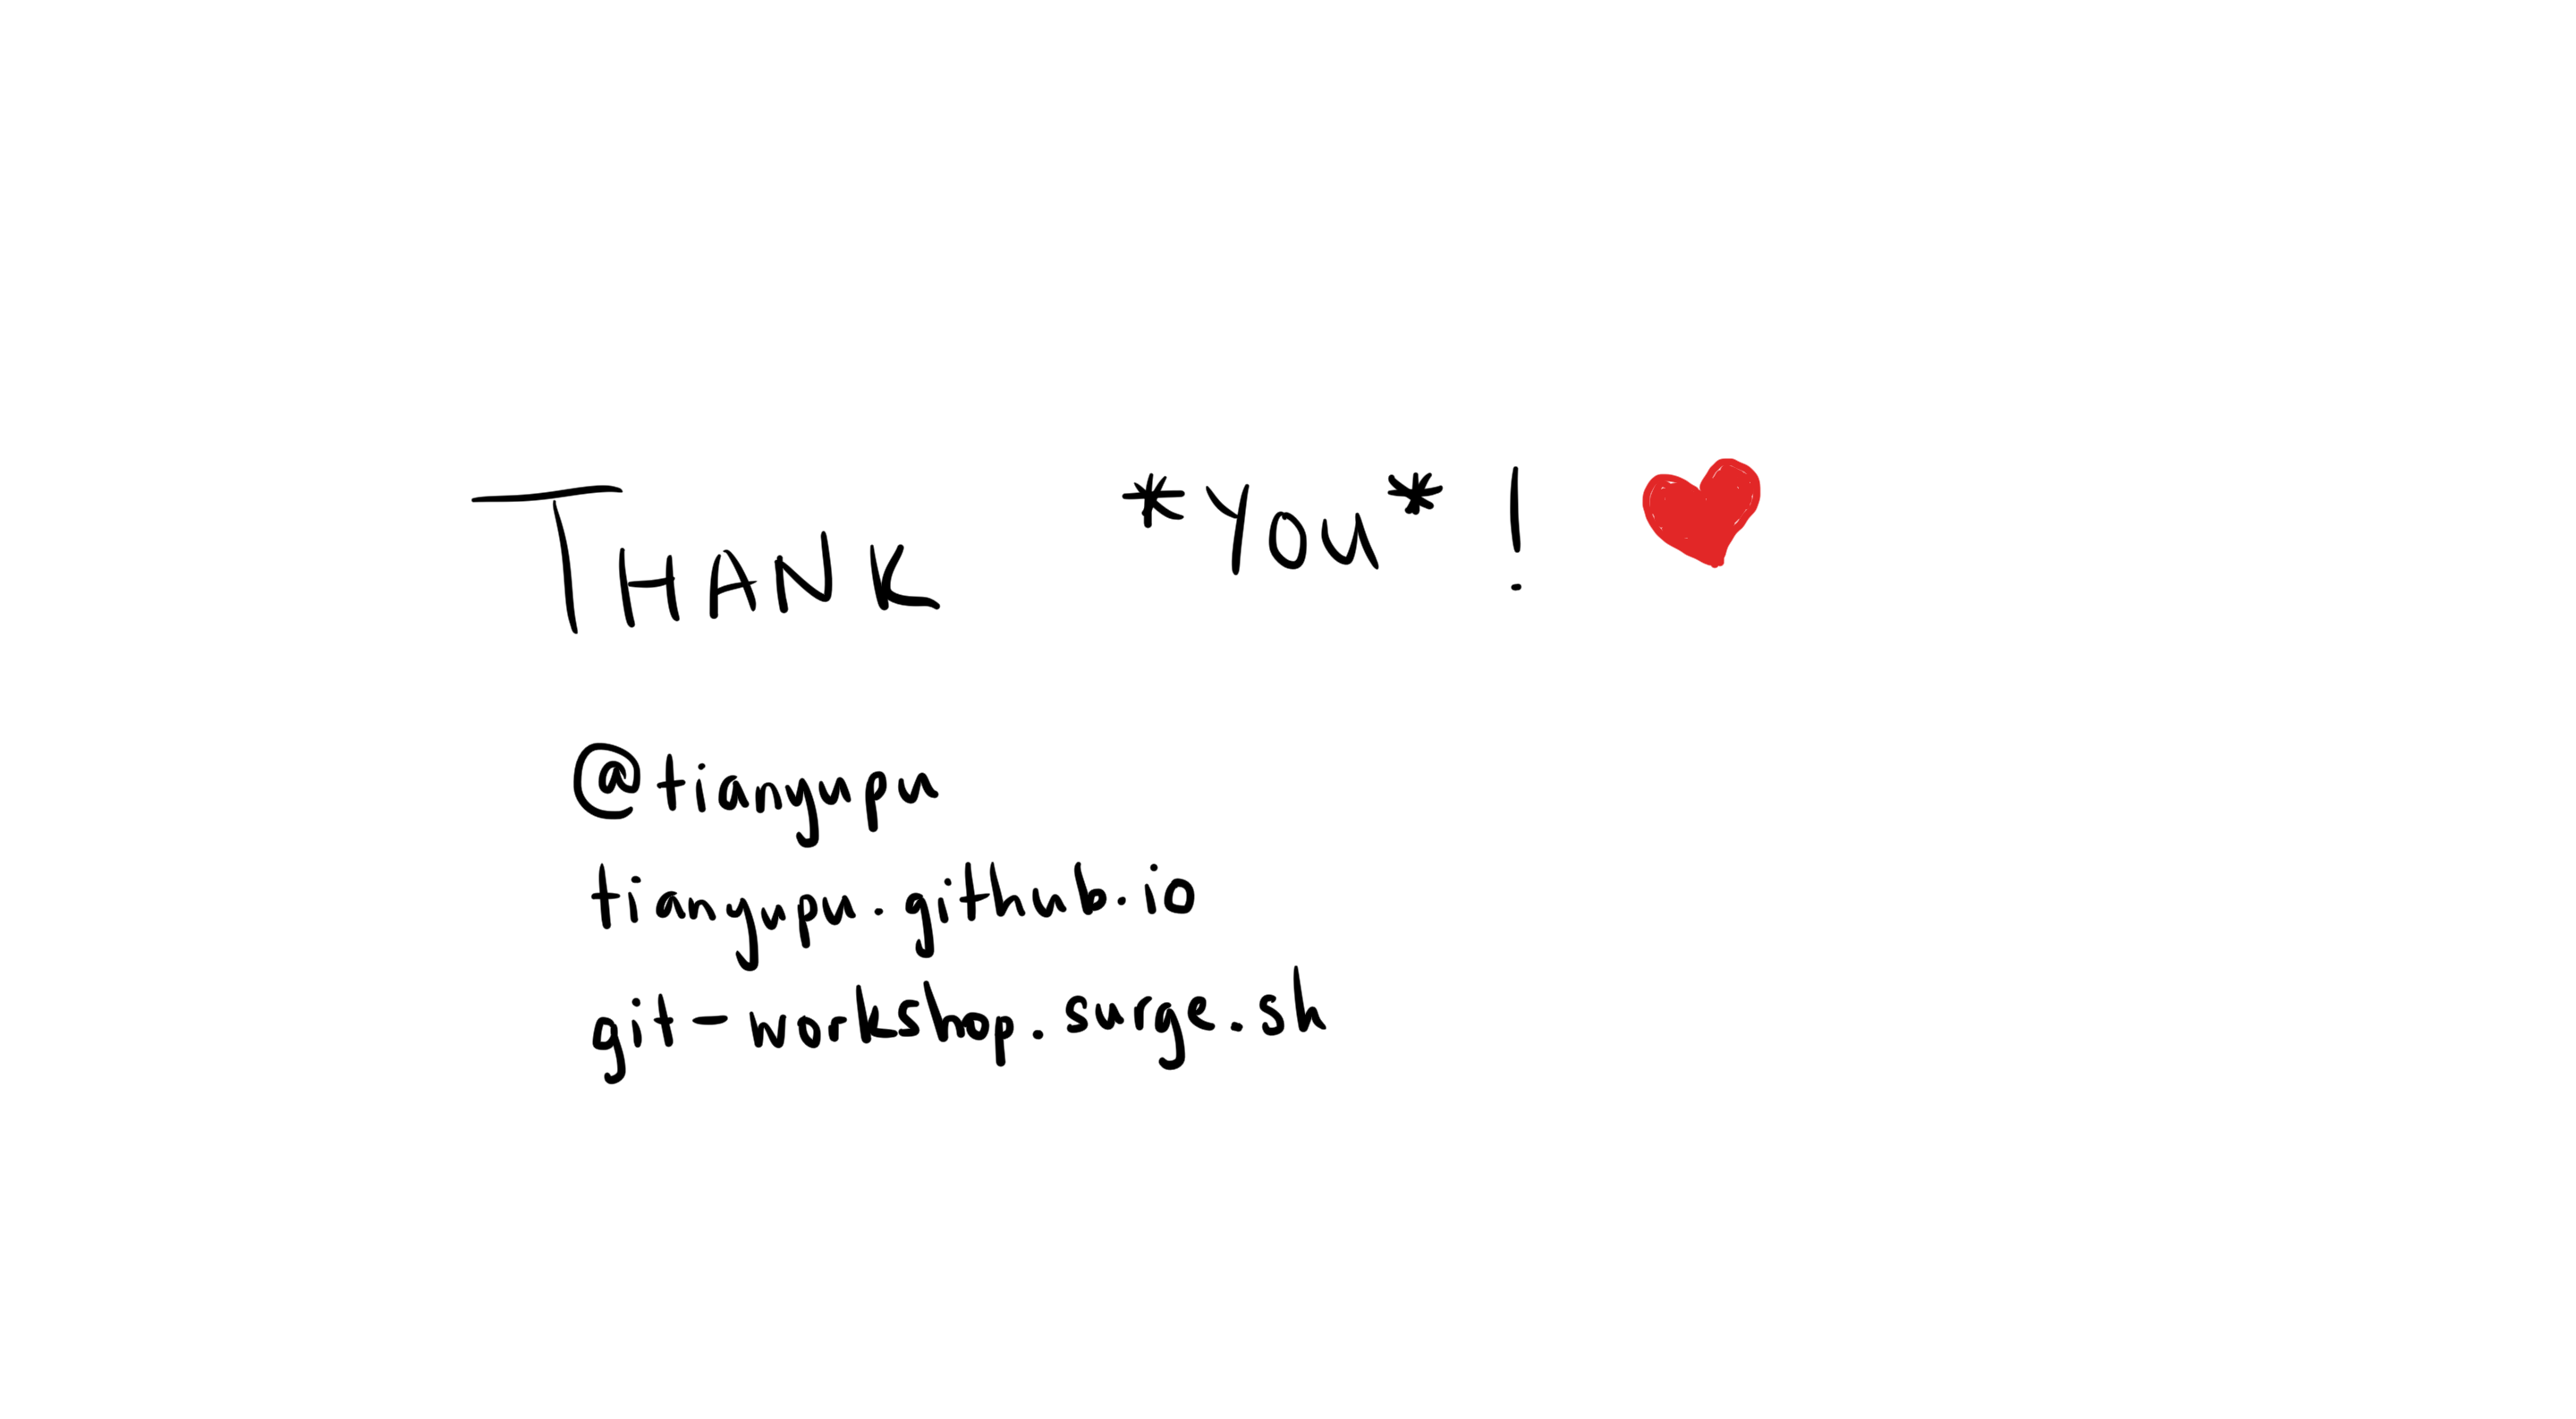 THANK *YOU* !
@tianyupu
tianyupu.github.io
git-workshop.surge.sh